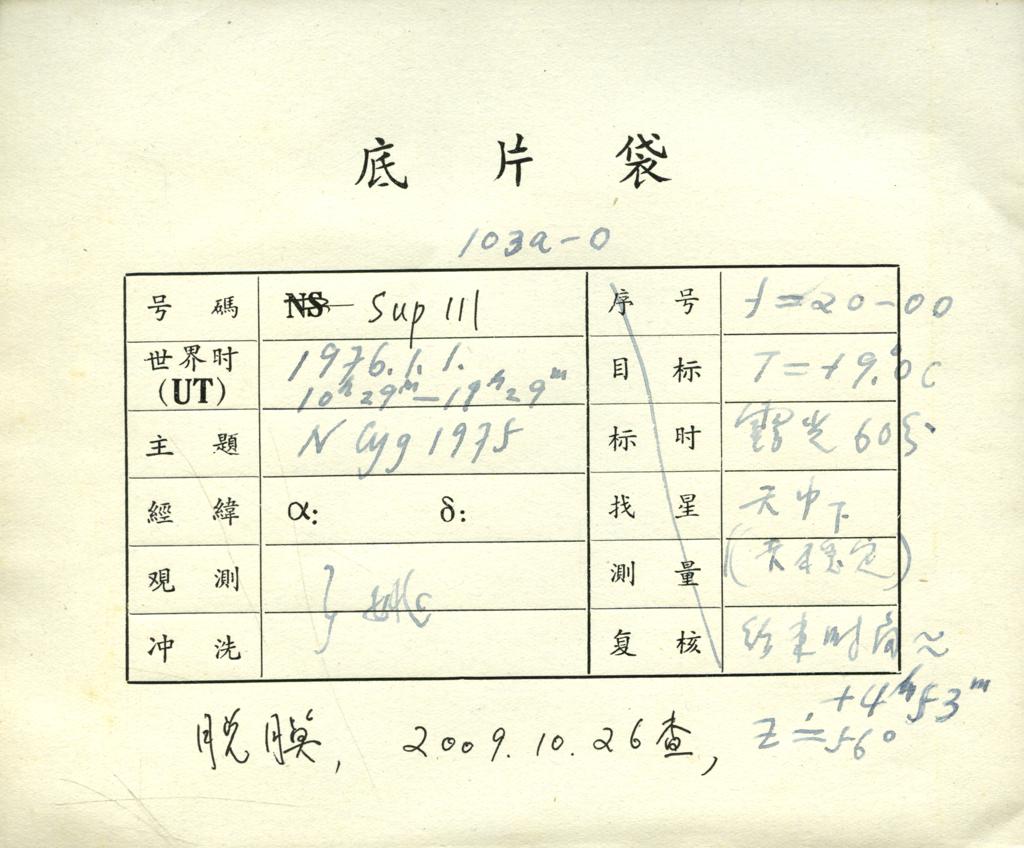 底片袋
103a-0
号碼 NS Sup 111 序号 f=20-00
世界时 (UT) 1976.1.1. 目标 T=+9.°0C
10ʰ29ᵐ—18ʰ29ᵐ
主題 N Cyg 1975 标时 露光 60分
經緯 α: δ: 找星 天中下
观測 } 姚 測量
冲洗 复核 结束时角~
+4ʰ53ᵐ
脱膜, 2009.10.26查, Z≐56°